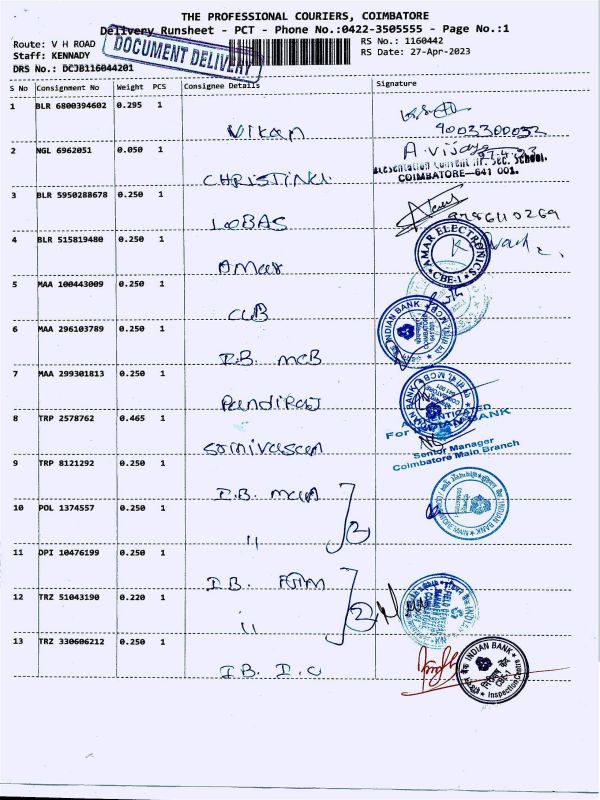 THE PROFESSIONAL COURIERS, COIMBATORE
Delivery Runsheet - PCT - Phone No.:0422-3505555 - Page No.:1
Route: V H ROAD
RS No.: 1160442
Staff: KENNADY
RS Date: 27-Apr-2023
DOCUMENT DELIVERY
DRS No.: DCJB116044201
S No Consignment No Weight PCS Consignee Details Signature
1 BLR 6800394602 0.295 1
Vikan
9003300032
2 NGL 6962051 0.050 1
A. Vijaya
27.4.23
Presentation Convent Hr. Sec. School,
COIMBATORE—641 001.
CHRISTINA
3 BLR 5950288678 0.250 1
LOBAS
4 BLR 515819480 0.250 1
AMAR ELECTRONICS
CBE-1
Amar
5 MAA 100443009 0.250 1
CUB
6 MAA 296103789 0.250 1
INDIAN BANK
I.B. MCB
7 MAA 299301813 0.250 1
Pandiraj
INDIAN BANK
8 TRP 2578762 0.465 1
AUTHENTICATED
For INDIAN BANK
Senior Manager
Coimbatore Main Branch
9 TRP 8121292 0.250 1
I.B. main
10 POL 1374557 0.250 1
INDIAN BANK
"
2
11 DPI 10476199 0.250 1
I.B.
12 TRZ 51043190 0.220 1
"
2
13 TRZ 330606212 0.250 1
INDIAN BANK
CBE-1
I.B. I.C